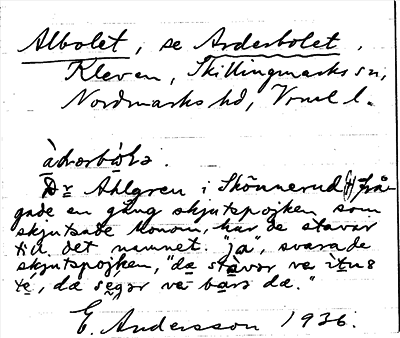 Albolet, se Arderbolet.
Kleven, Skillingmarks sn,
Nordmarks hd, Vrml l.
Dr Ahlgren i Skönnerud frå-
gade en gång skjutspojken som
skjutsade honom, har de stavar
till det namnet. "ja", svarade
skjutspojken, "da stavor va itus
te, da segor va bara da."
E. Andersson 1936.